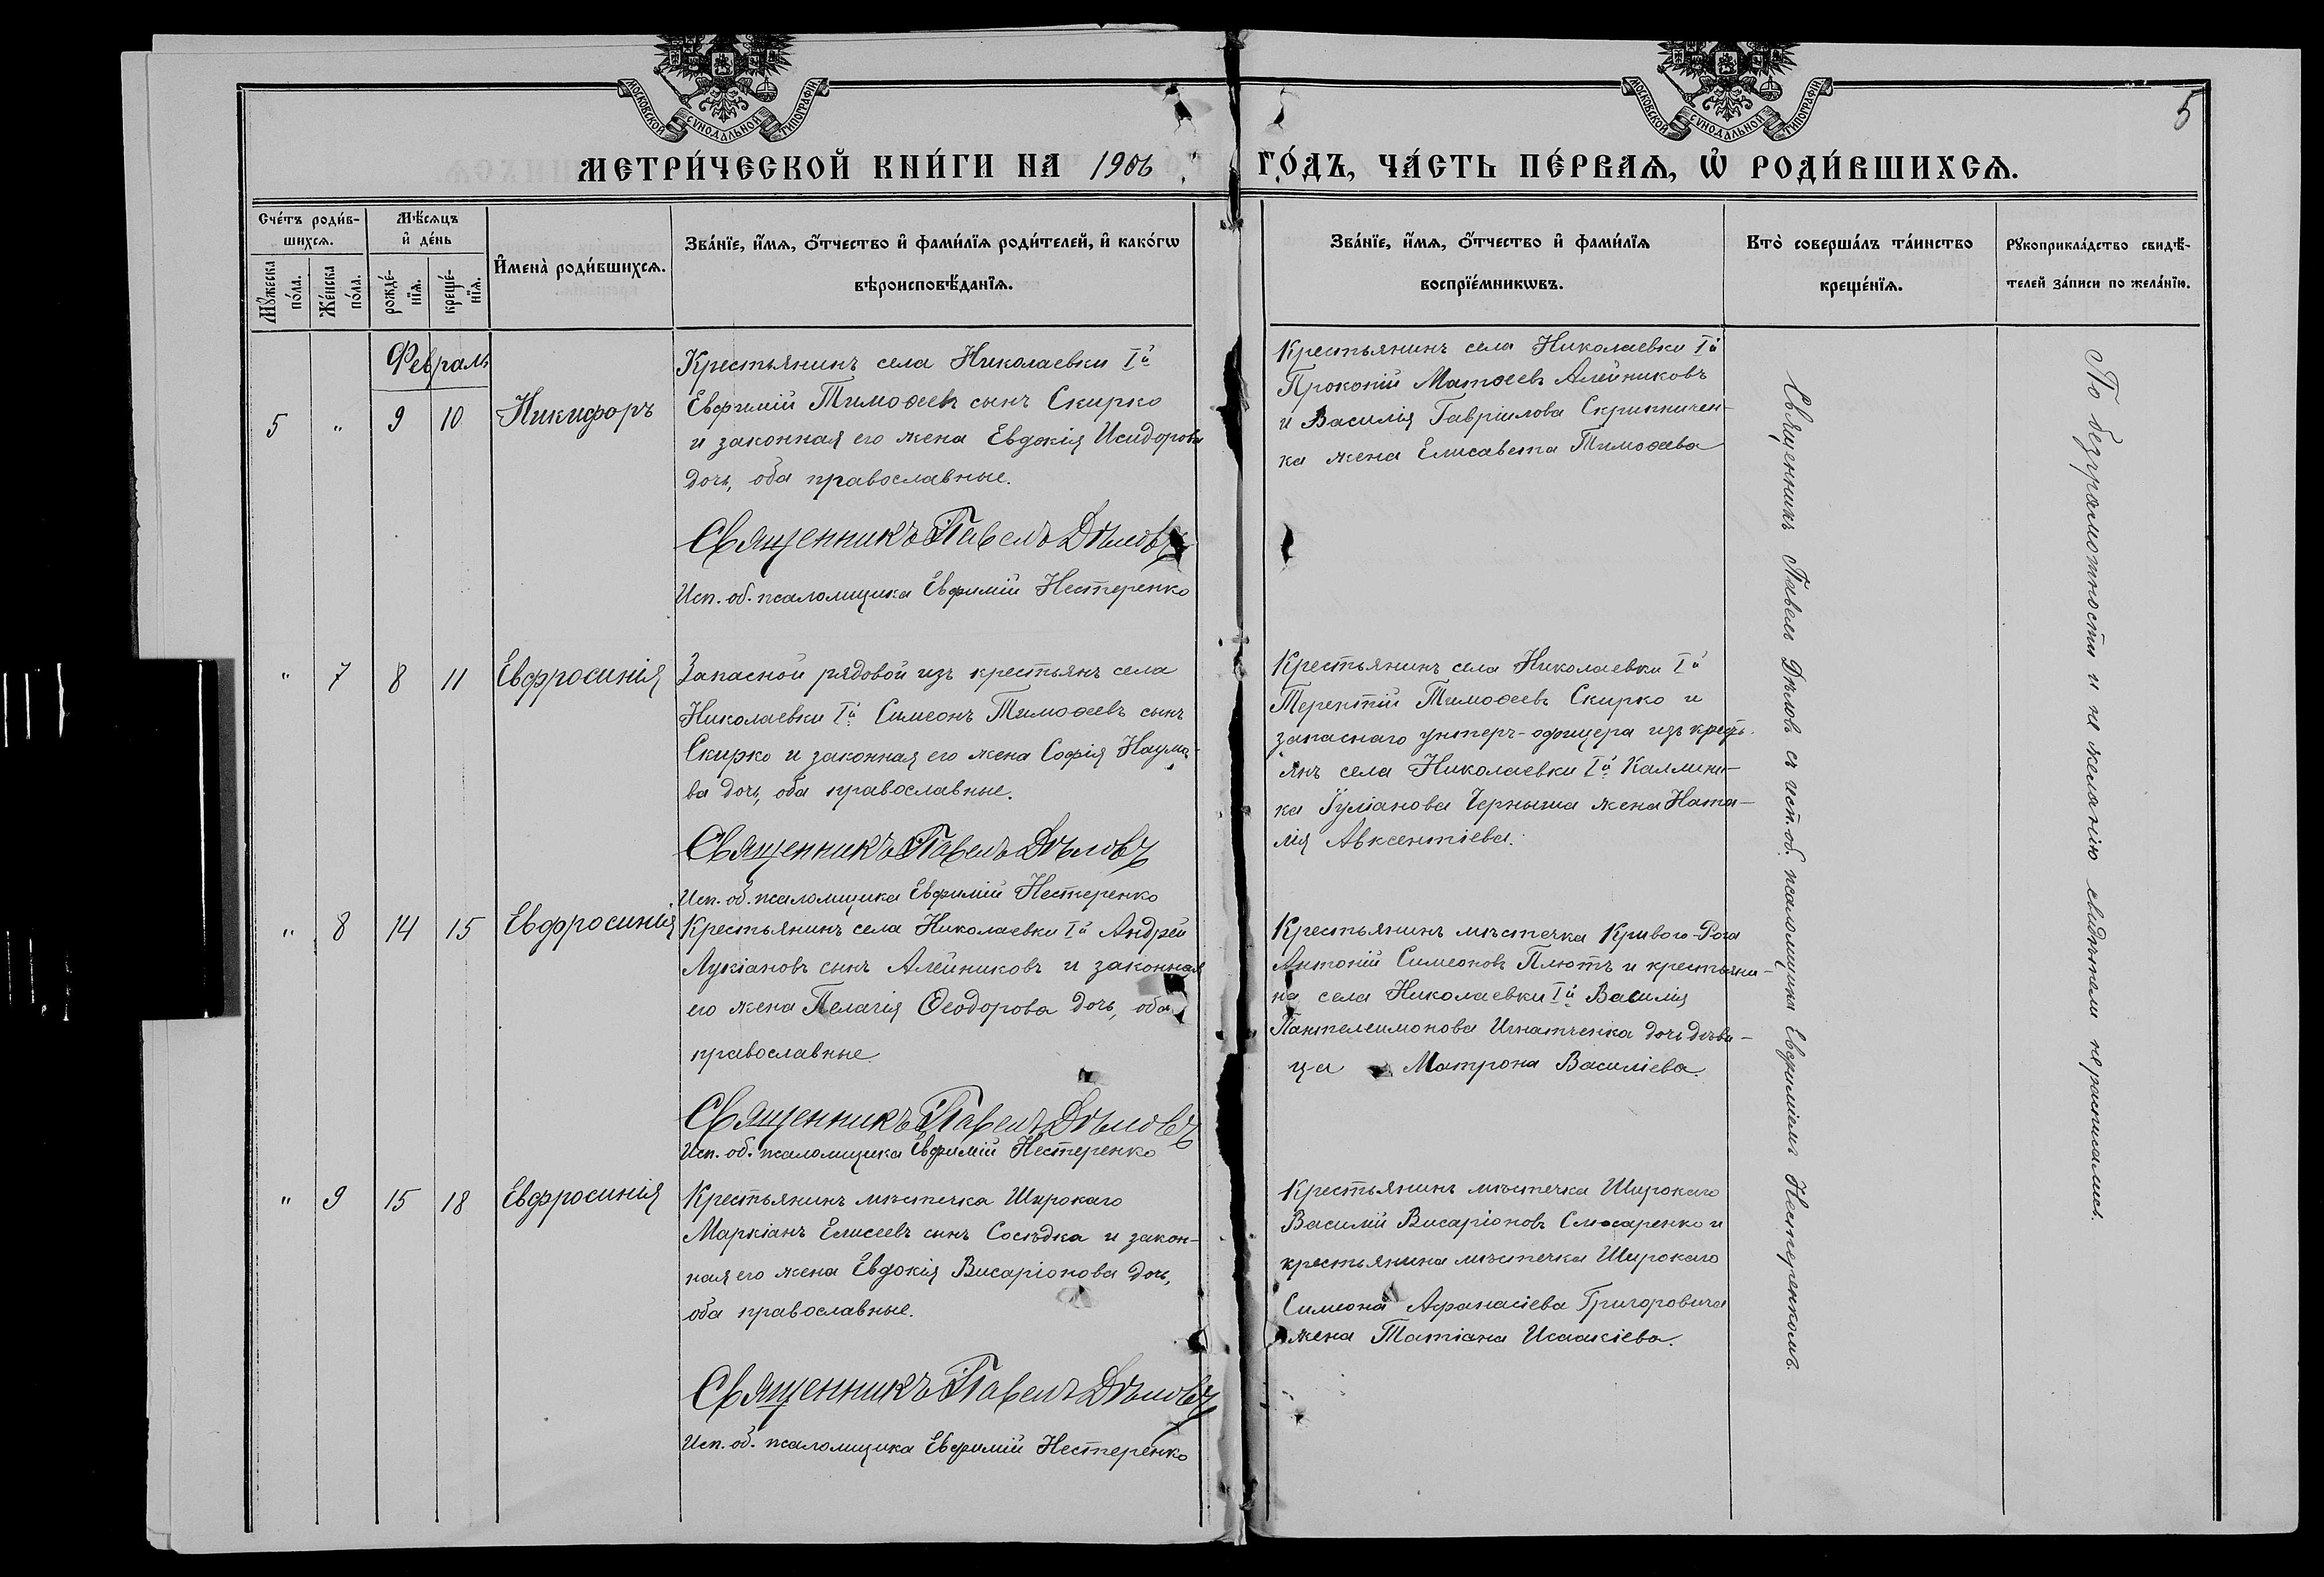 МОСКОВСКОЙ СУНОДАЛЬНОЙ ТИПОГРАФІИ
МОСКОВСКОЙ СУНОДАЛЬНОЙ ТИПОГРАФІИ
5
МЕТРИ́ЧЕСКОЙ КНИ́ГИ НА 1906
ГО́ДЪ, ЧА́СТЬ ПЕ́РВАѦ, Ѽ РОДИ́ВШИХСѦ.
Сче́тъ роди́в-
шихсѧ.
Мꙋ́жеска
по́ла.
Же́нска
по́ла.
Мѣ́сѧцъ
и҆ де́нь
рожде́-
нїѧ.
креще́-
нїѧ.
И҆мена̀ роди́вшихсѧ.
Зва́нїе, и҆́мѧ, ѻ҆́тчество и҆ фами́лїѧ роди́телей, и҆ како́гѡ
вѣроисповѣ́данїѧ.
Зва́нїе, и҆́мѧ, ѻ҆́тчество и҆ фами́лїѧ
воспрїе́мникѡвъ.
Кто̀ соверша́лъ та́инство
креще́нїѧ.
Рꙋкоприкла́дство свидѣ́-
телей за́писи по жела́нїю.
Февраль
5 " 9 10 Никифоръ
Крестьянинъ села Николаевки Iй
Евфимій Тимоѳеевъ сынъ Скирко
и законная его жена Евдокія Исидорова
дочь, оба православные.
Священникъ Павелъ Дѣловъ
Исп. об. псаломщика Евфимій Нестеренко
Крестьянинъ села Николаевки Iй
Прокопій Матѳеевъ Алейниковъ
и Василія Гавріилова Скрипничен-
ка жена Елисавета Тимоѳеева
" 7 8 11 Евфросинія
Запасной рядовой изъ крестьянъ села
Николаевки Iй Симеонъ Тимоѳеевъ сынъ
Скирко и законная его жена Софія Наумо-
ва дочь, оба православные.
Священникъ Павелъ Дѣловъ
Исп. об. псаломщика Евфимій Нестеренко
Крестьянинъ села Николаевки Iй
Терентій Тимоѳеевъ Скирко и
запаснаго унтеръ-офицера изъ кресть-
янъ села Николаевки Iй Каллини-
ка Іуліанова Черныша жена Ната-
лія Авксентіева.
" 8 14 15 Евфросинія
Крестьянинъ села Николаевки Iй Андрей
Лукіановъ сынъ Алейниковъ и законная
его жена Пелагія Ѳеодорова дочь, оба
православные
Священникъ Павелъ Дѣловъ
Исп. об. псаломщика Евфимій Нестеренко
Крестьянинъ мѣстечка Кривого-Рога
Антоній Симеоновъ Плютъ и крестьяни-
на села Николаевки Iй Василія
Пантелеимонова Игнатченка дочь дѣви-
ца Матрона Василіева.
" 9 15 18 Евфросинія
Крестьянинъ мѣстечка Широкаго
Маркіанъ Елисеевъ сынъ Сосѣдка и закон-
ная его жена Евдокія Висаріонова дочь,
оба православные.
Священникъ Павелъ Дѣловъ
Исп. об. псаломщика Евфимій Нестеренко
Крестьянинъ мѣстечка Широкаго
Василій Висаріоновъ Слюсаренко и
крестьянина мѣстечка Широкаго
Симеона Аѳанасіева Григоровича
жена Татіана Исаакіева.
Священникъ Павелъ Дѣловъ съ исп. об. псаломщика Евфиміемъ Нестеренкомъ.
По безграмотности и не желанію свидѣтели не расписались.